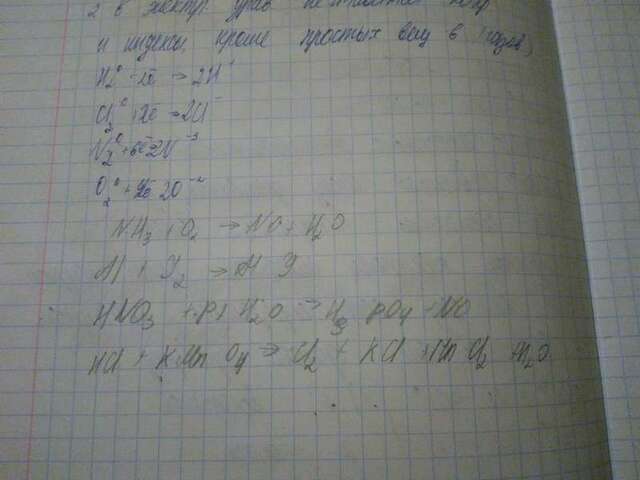 2 в электр. урав
и индексы, кроме простых вещ в
H₂⁰ - 2е → 2H⁺
Cl₂⁰ + 2е → 2Cl⁻
N₂⁰ + 6е = 2N⁻³
O₂⁰ + 4е 2O⁻²
NH₃ + O₂ → NO + H₂O
Al + I₂ → Al I
HNO₃ + P + H₂O → H₃ PO₄ + NO
HCl + KMnO₄ → Cl₂ + KCl + MnCl₂ + H₂O